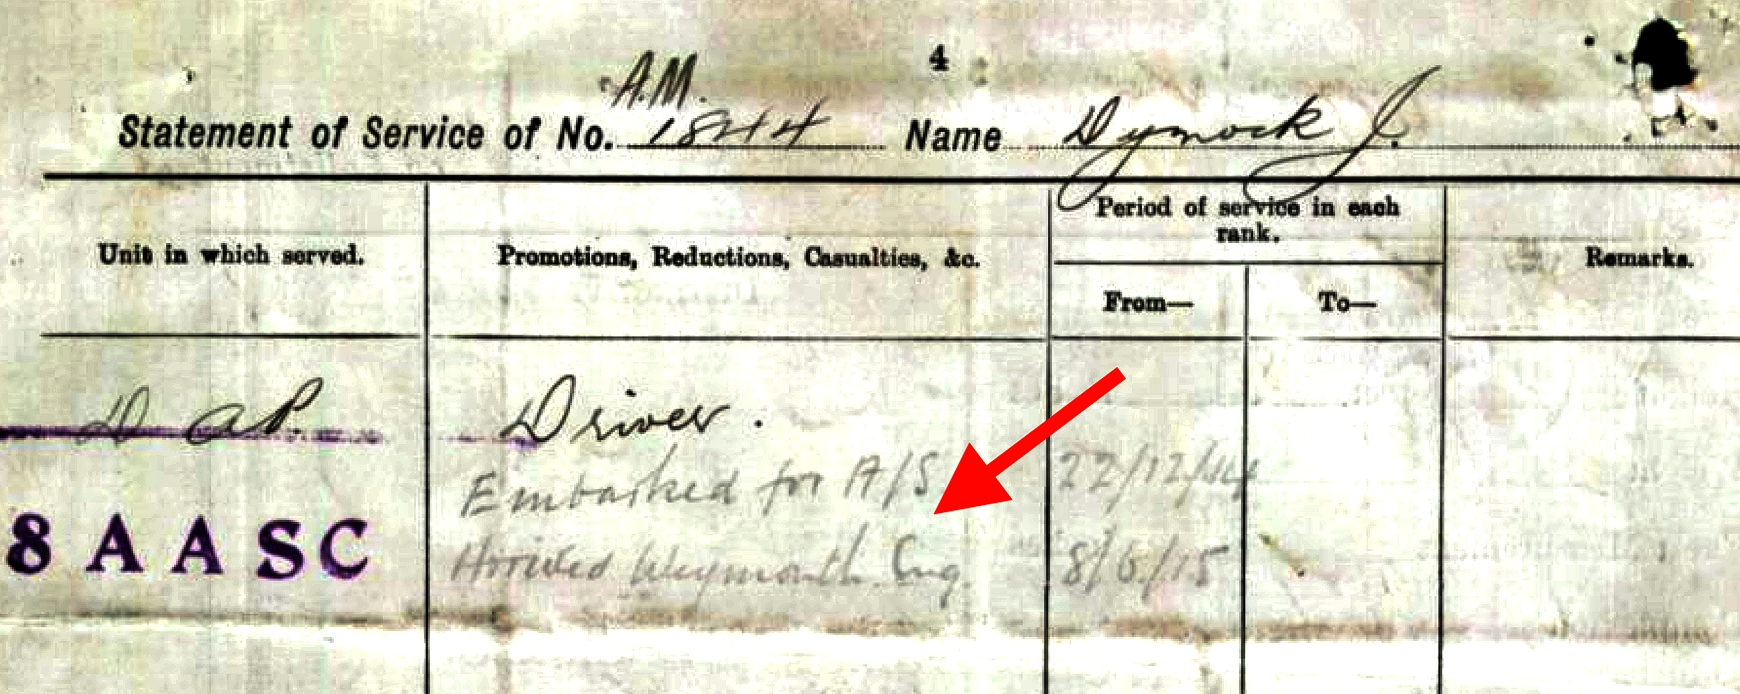 4
A.M.
Statement of Service of No. 1844 Name Dymock J.
Unit in which served. Promotions, Reductions, Casualties, &c. Period of service in each rank. Remarks.
From— To—
Driver.
Embarked for A/S 22/12/14
8 AASC Arrived Weymouth Eng. 8/6/15